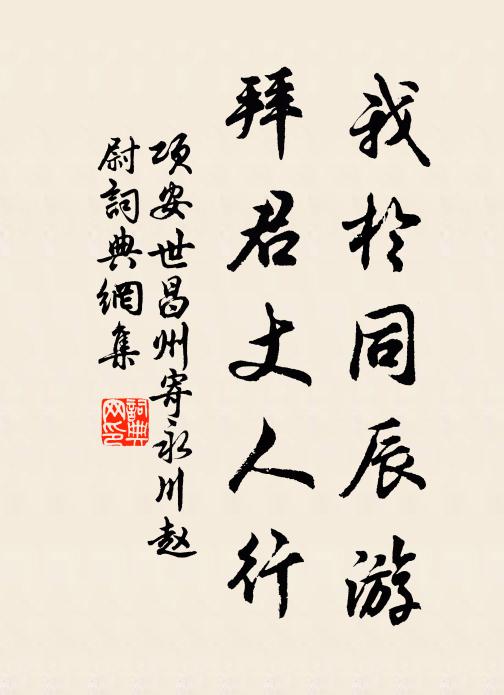 我於同辰游
拜君丈人行
项安世昌州寄永川赵
尉詞典網集
詞典
网印